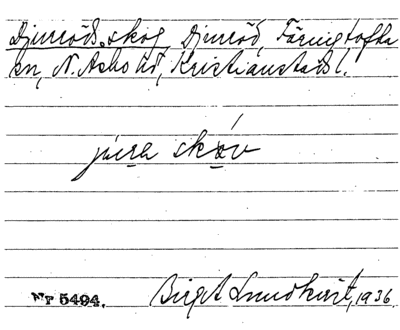 Djurröds skog, Djurröd, Färingtofta
sn, N. Åsbo hd, Kristianstads l.
jura skóv
Nr 5494. Birgit Lundkvist, 1936.